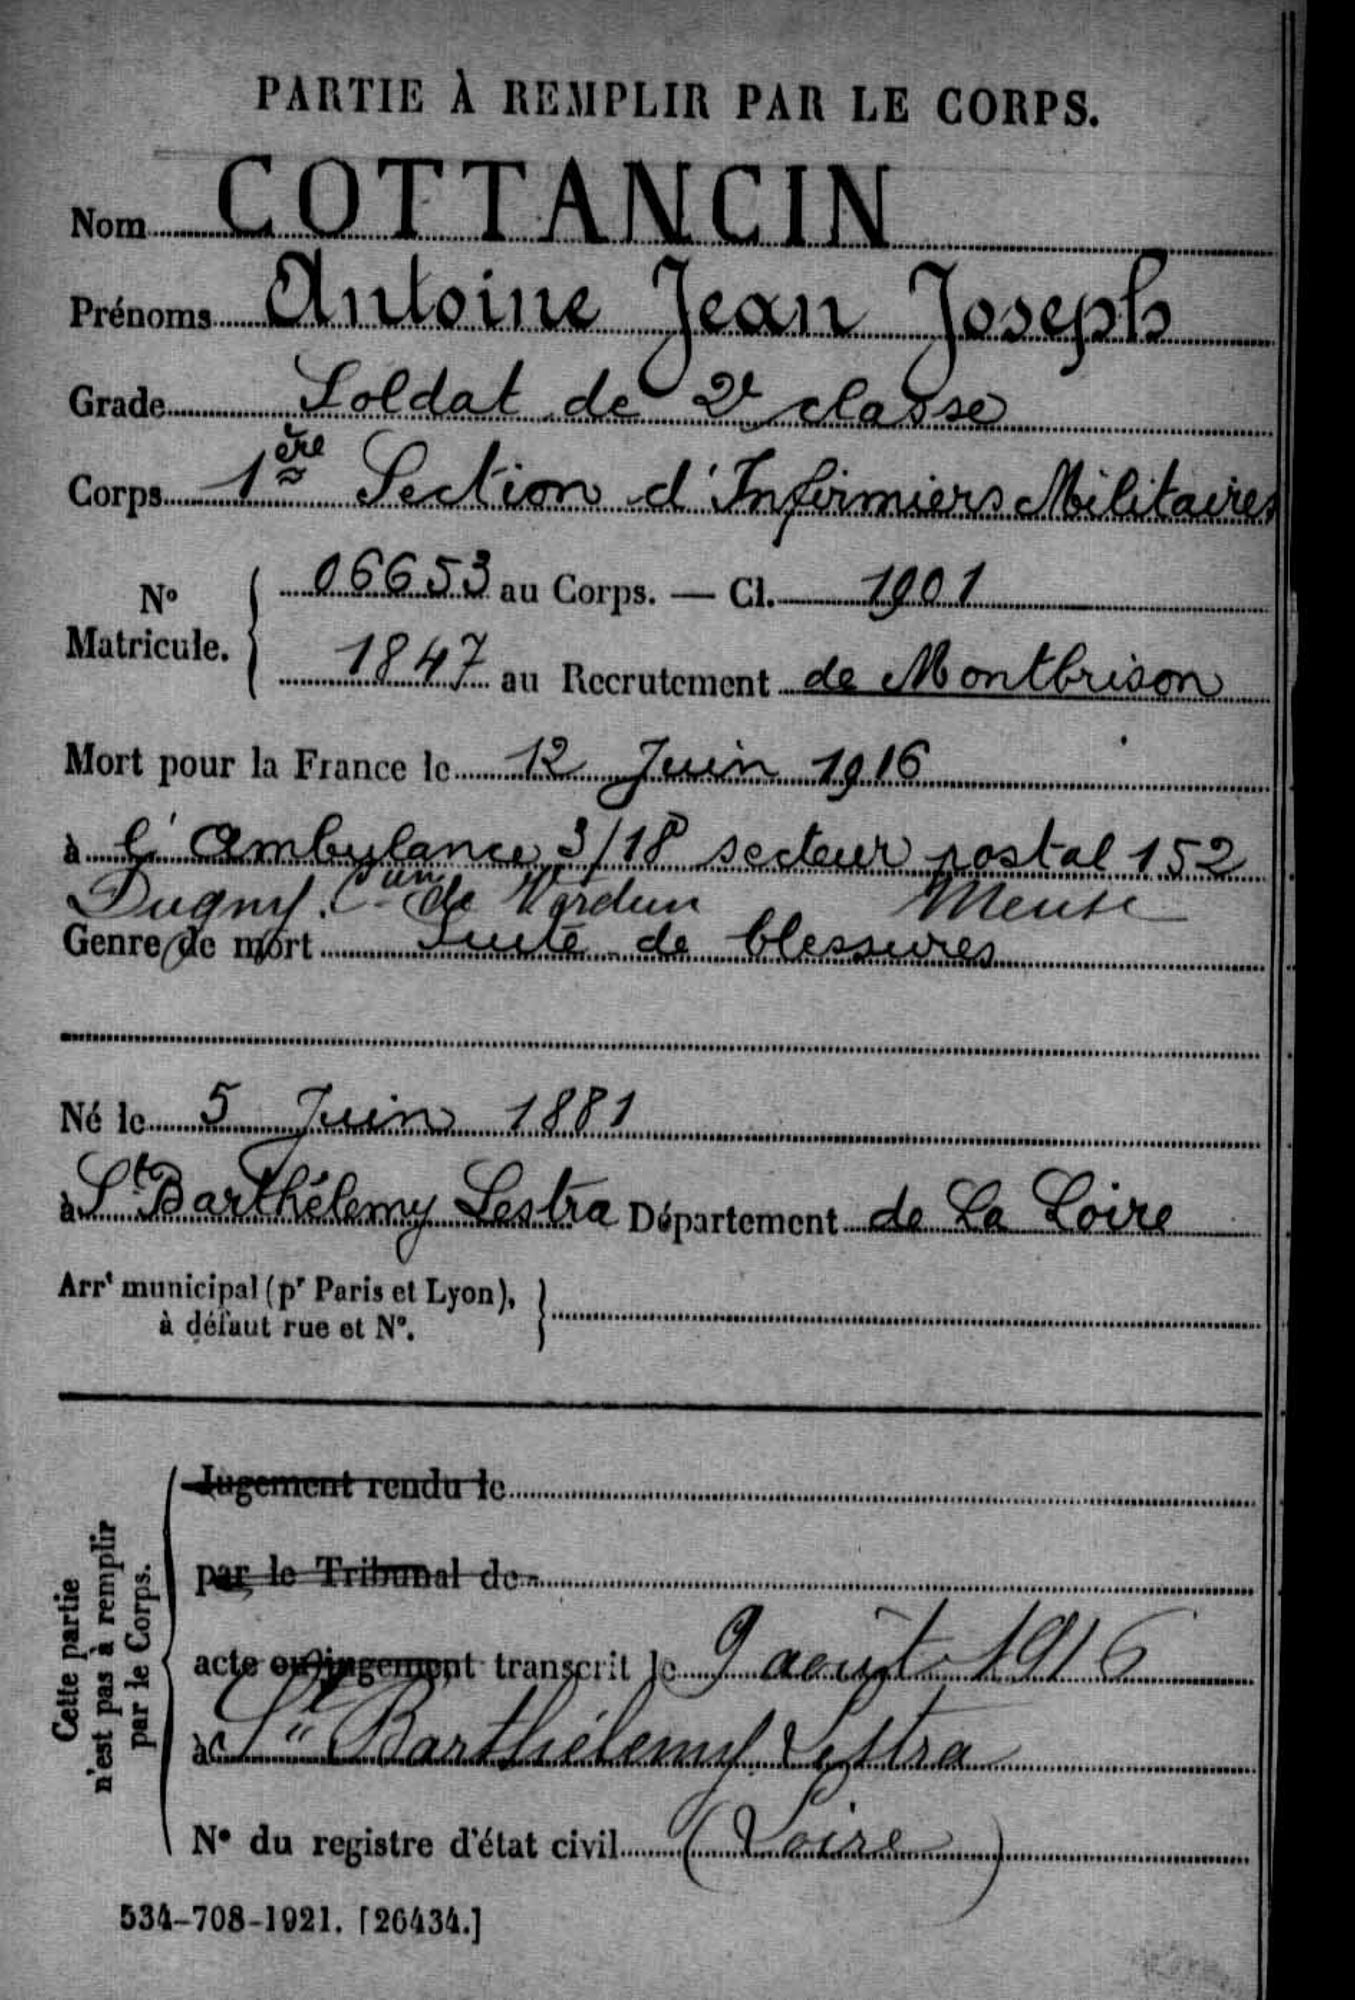 PARTIE À REMPLIR PAR LE CORPS.
Nom COTTANCIN
Prénoms Antoine Jean Joseph
Grade Soldat de 2e classe
Corps 1ère Section d'Infirmiers Militaires
No Matricule. 06653 au Corps. — Cl. 1901
1847 au Recrutement de Montbrison
Mort pour la France le 12 Juin 1916
à l'Ambulance 3/18 secteur postal 152
Dugny. Con de Verdun Meuse
Genre de mort Suite de blessures
Né le 5 Juin 1881
à St Barthélemy Lestra Département de La Loire
Arrt municipal (pr Paris et Lyon),
à défaut rue et No.
Cette partie
n'est pas à remplir
par le Corps.
Jugement rendu le
par le Tribunal de
acte ou jugement transcrit le 9 août 1916
à St Barthélemy Lestra
No du registre d'état civil (Loire)
534-708-1921. [26434.]